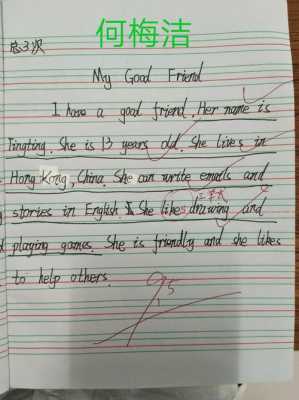 何梅洁
总3次
My Good Friend
I have a good friend. Her name is
Tingting. She is 13 years old. She lives in
Hong Kong, China. She can write emails and
stories in English. She likes drawing and
playing games. She is friendly and she likes
to help others.
95